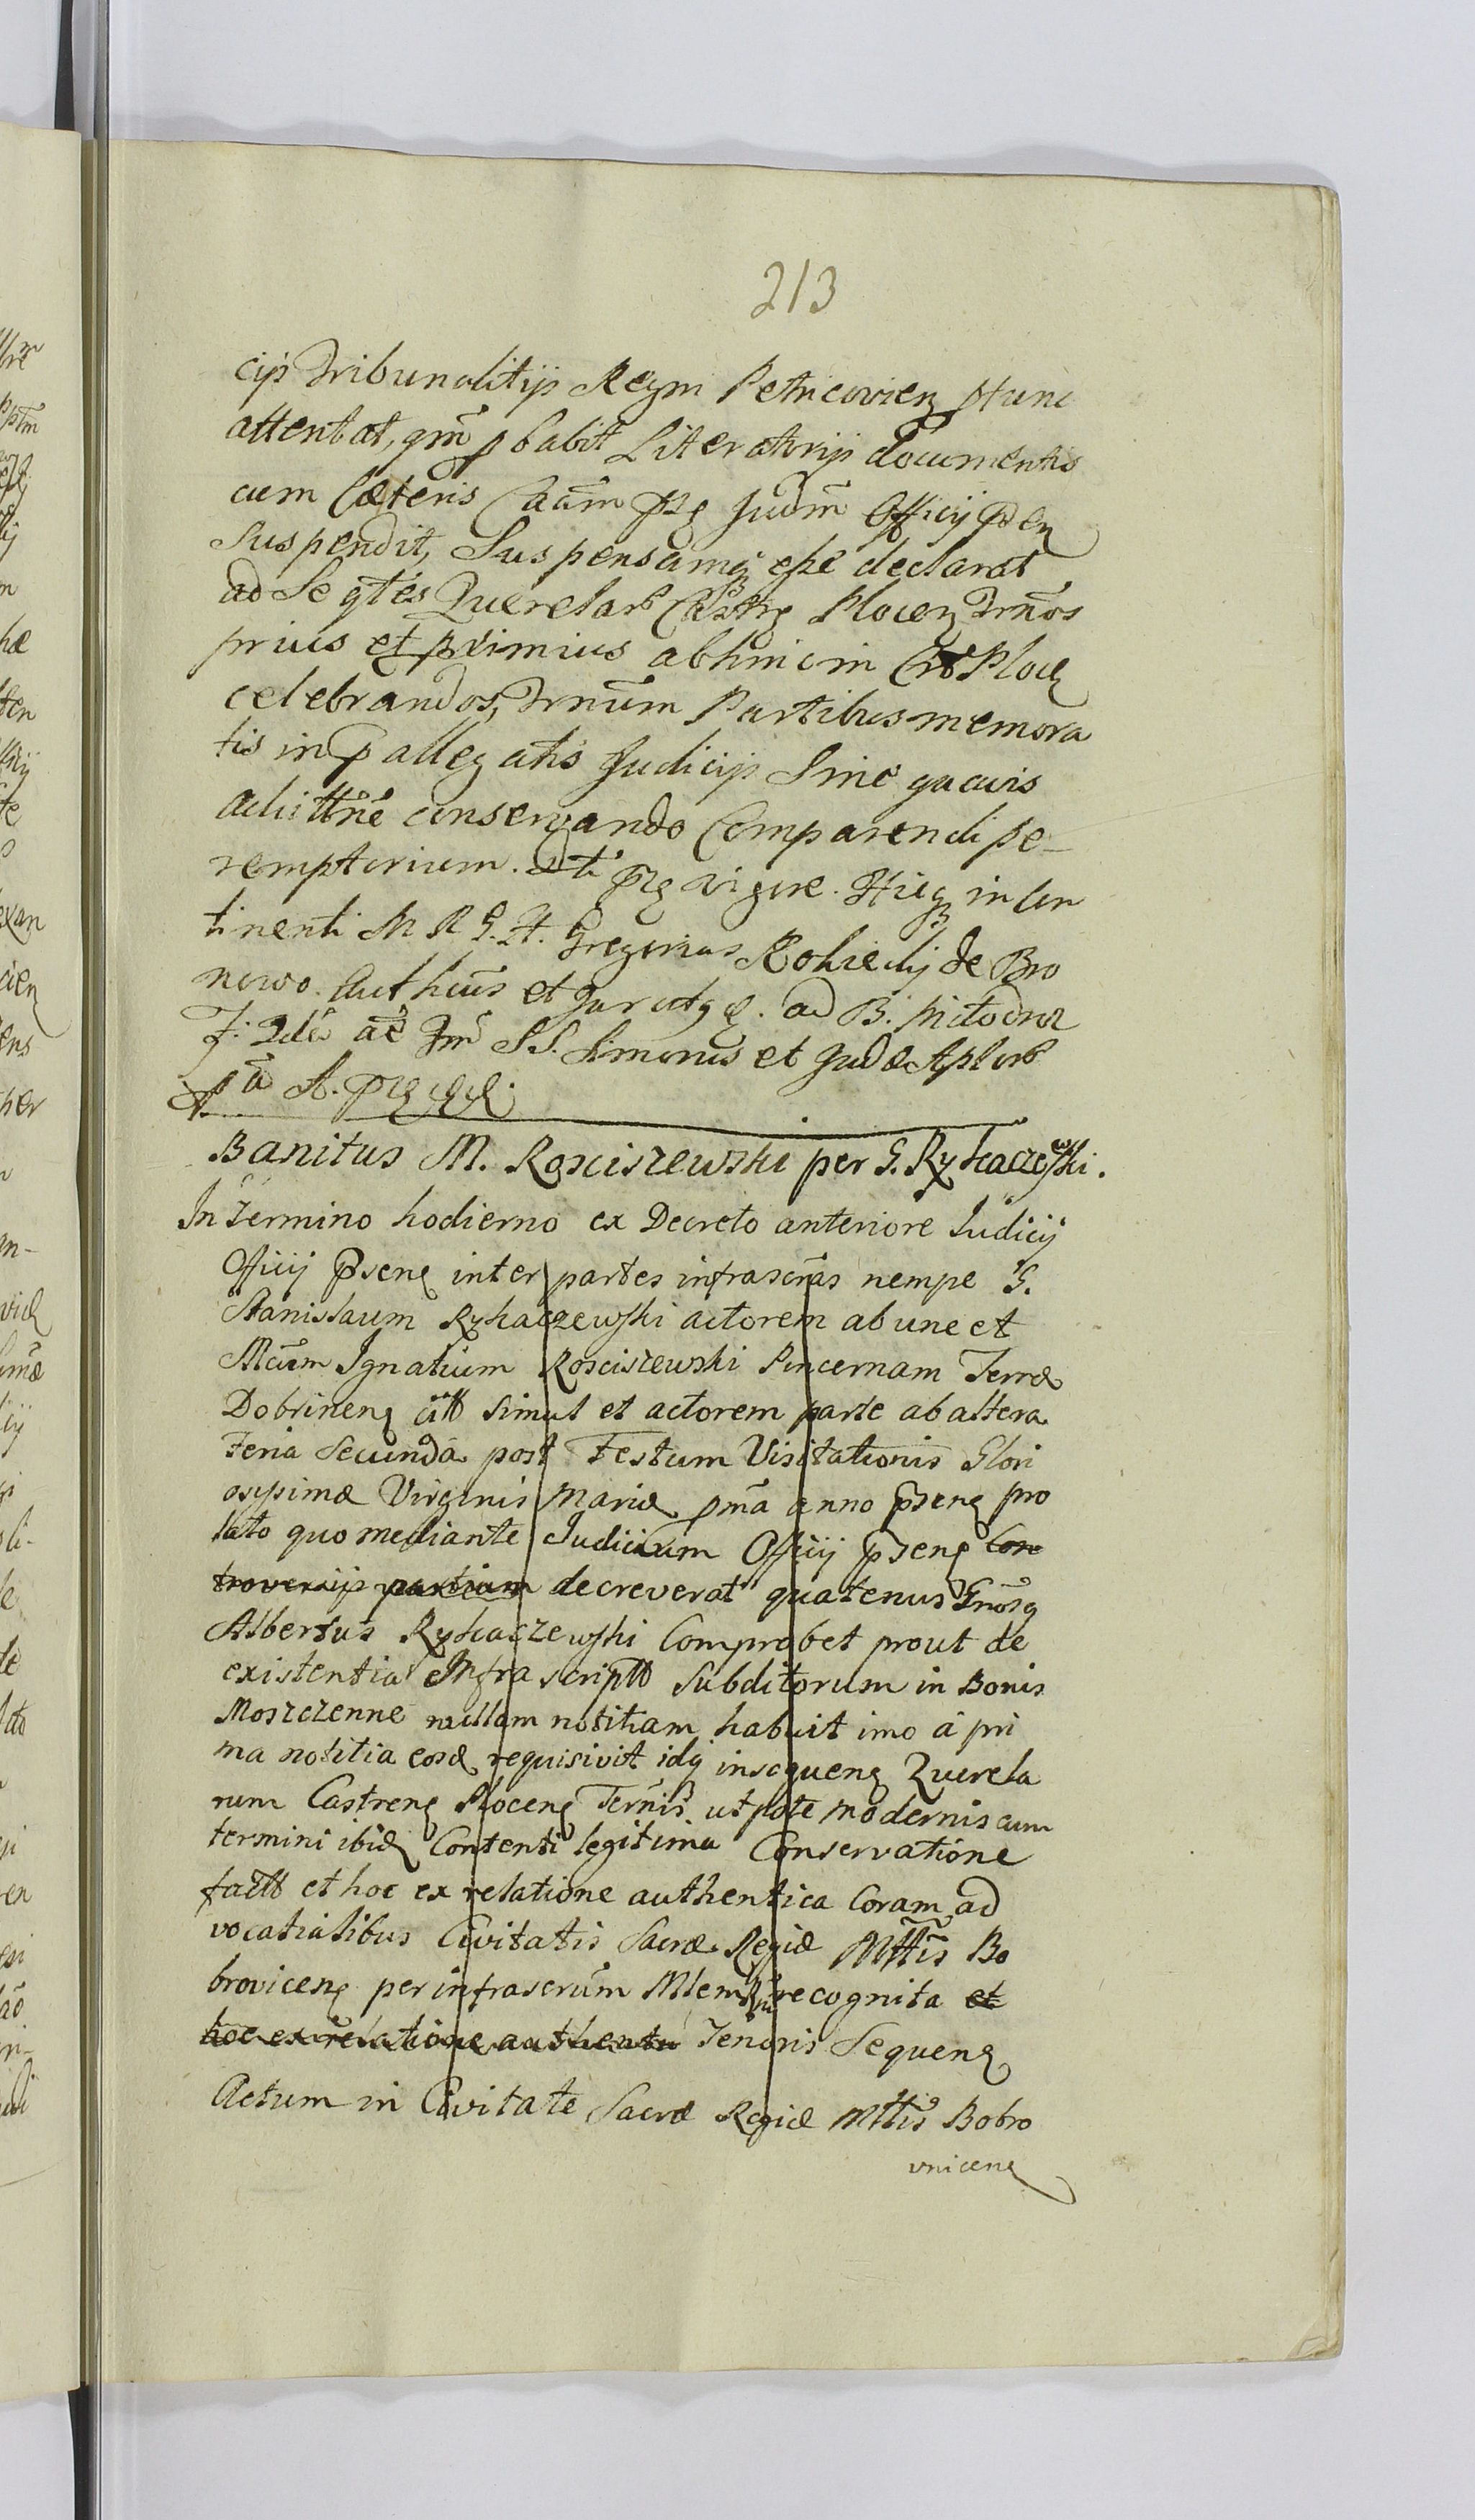 213
cijs Tribunalitijs Regni Petricovien Nunc
attentat, qm̃ pbabit Literatorijs documentis
cum Cæteris Cãam Judm̃ Officij
Suspendit, Suspensamq esse declarat
ad Seqtes Querelar Castr Plocen Trm̃os
prius et pximius abhinc in Plocen
celebrandos, Trm̃um Partibus memora
tis in pallegatis Judicijs Sine quavis
aditt̃ne conservando Comparendi pe-
remptorium. vigore. Hicq in con
tinenti M R G. H. Gregorius Rokicky de Bro
nowo. et ad B.
F. 2da SS. Simonis et Judæ Aplor
A.
Banitus M. Rosciszewski per G. Rykaczewski.
In Termino hodierno ex Decreto anteriore Iudicij
Officij Pseng inter partes infrascr̃as nempe G.
Stanislaum Rykaczewski actorem ab une et
Mcũm Ignatium Rosciszewski Pincernam Terræ
Dobrineng citt simul et actorem parte ab altera
Feria Secunda post Festum Visitationis Glori
osissimæ Virginis Mariæ pm̃a anno pseng pro
lato quo mediante Judicium Officij pseng Con
troversijs partium decreverat quatenus Gnosg
Albertus Rykaczewski Comprobet prout de
existentia Infra scriptt Subditorum in Bonis
Moszczenne nullam notitiam habuit imo à pri
ma notitia eosd requisivit idq insequeng Querela
rum Castreng Ploceng Ternis utpote modernis cum
termini ibid Contenti legitima Conservatione
factt et hoc ex relatione authentica Coram ad
vocatialibus Civitatis Sacræ Regiæ Mttis Bo
broviceng per infrascrũm Mlem recognita et
hoc ex relatione authenti Tenoris Sequeng
Actum in Civitate Sacræ Regiæ Mttis Bobro
vniceng